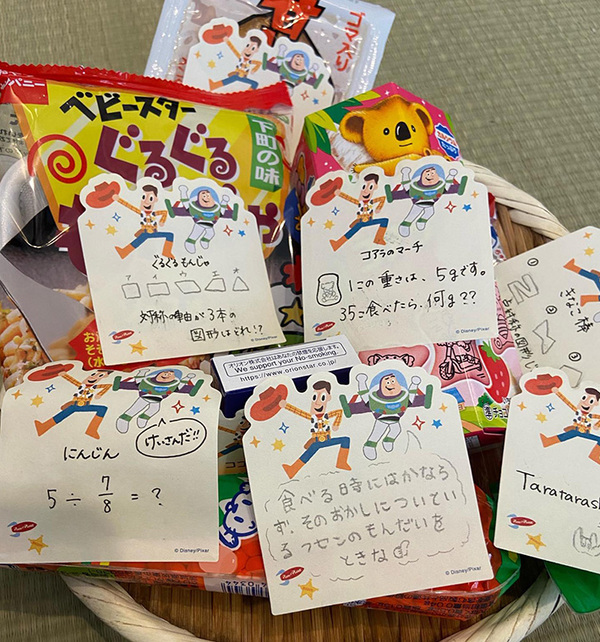 ゴマ入り
パニー
ベビースター
ぐるぐる
下町の味
ぐるぐるもんじゃ
ア イ ウ エ オ
対称の軸が3本の
図形はどれ!?
© Disney/Pixar
コアラのマーチ
1この重さは、5gです。
35こ食べたら、何g??
© Disney/Pixar
オリオン株式会社はあなたの禁煙を応援します。
We support your No-smoking.
https://www.orionstar.co.jp/
けいさんだ!!
にんじん
5÷7/8=?
© Disney/Pixar
食べる時にはかなら
ず、そのおかしについてい
るフセンのもんだいを
ときな
© Disney/Pixar
Taratarash